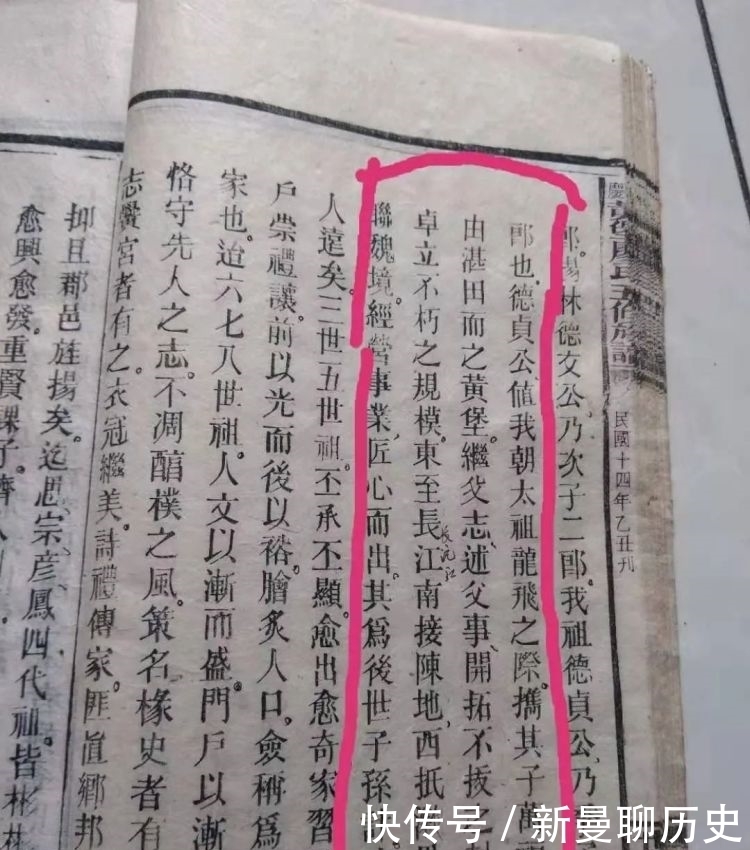 族譜
民國十四年乙丑刊
郎。楊林德文公,乃次子二郎。我祖德貞公,乃
郎也,德貞公,值我朝太祖龍飛之際。攜其子萬
由湛田而之黃堡。繼父志,述父事,開拓不拔之
卓立不朽之規模。東至長江南接陳地,西抵
長沅江
聯魏境。經營事業,匠心而出。其爲後世子孫
人遠矣。三世五世祖。丕承丕顯。愈出愈奇家習
戶崇禮讓。前以光而後以裕。膾炙人口。僉稱爲
家也。迨六七八世祖。人文以漸而盛。門戶以漸
恪守先人之志。不凋醕樸之風。策名椽史者有
志黌宮者有之。衣冠繼美。詩禮傳家。匪直鄉邦
抑且郡邑旌揚矣。迄思、宗、彥、鳳四代祖。皆彬彬
愈興愈發。重賢課子。濟
快传号/新曼聊历史